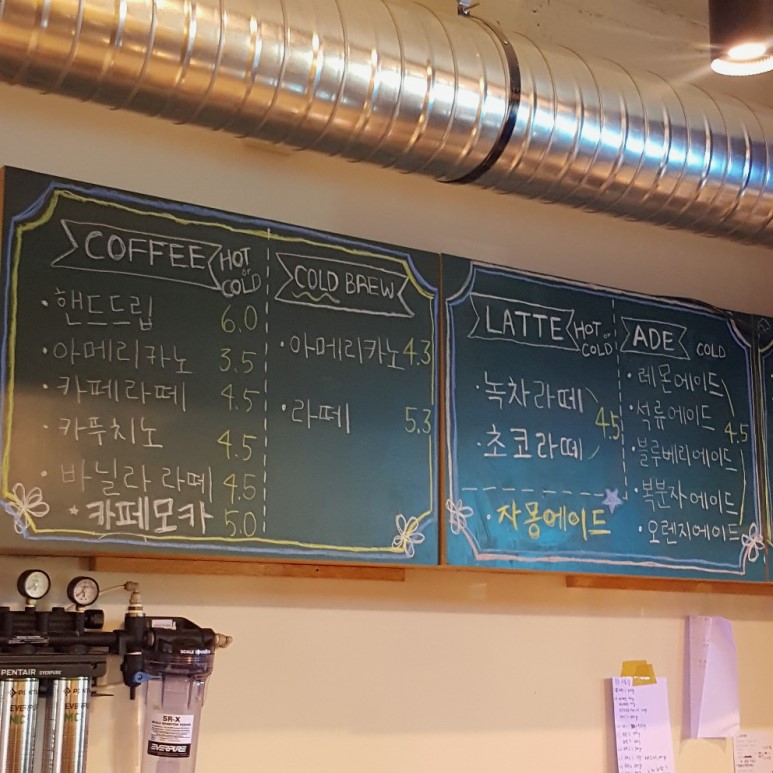 COFFEE HOT or COLD
·핸드드립 6.0
·아메리카노 3.5
·카페라떼 4.5
·카푸치노 4.5
·바닐라 라떼 4.5
*카페모카 5.0
COLD BREW
·아메리카노 4.3
·라떼 5.3
LATTE HOT or COLD
·녹차라떼
4.5
·초코라떼
·자몽에이드
ADE COLD
·레몬에이드
·석류에이드
4.5
·블루베리에이드
·복분자에이드
·오렌지에이드
PENTAIR EVERPURE
SR-X
EVERPURE